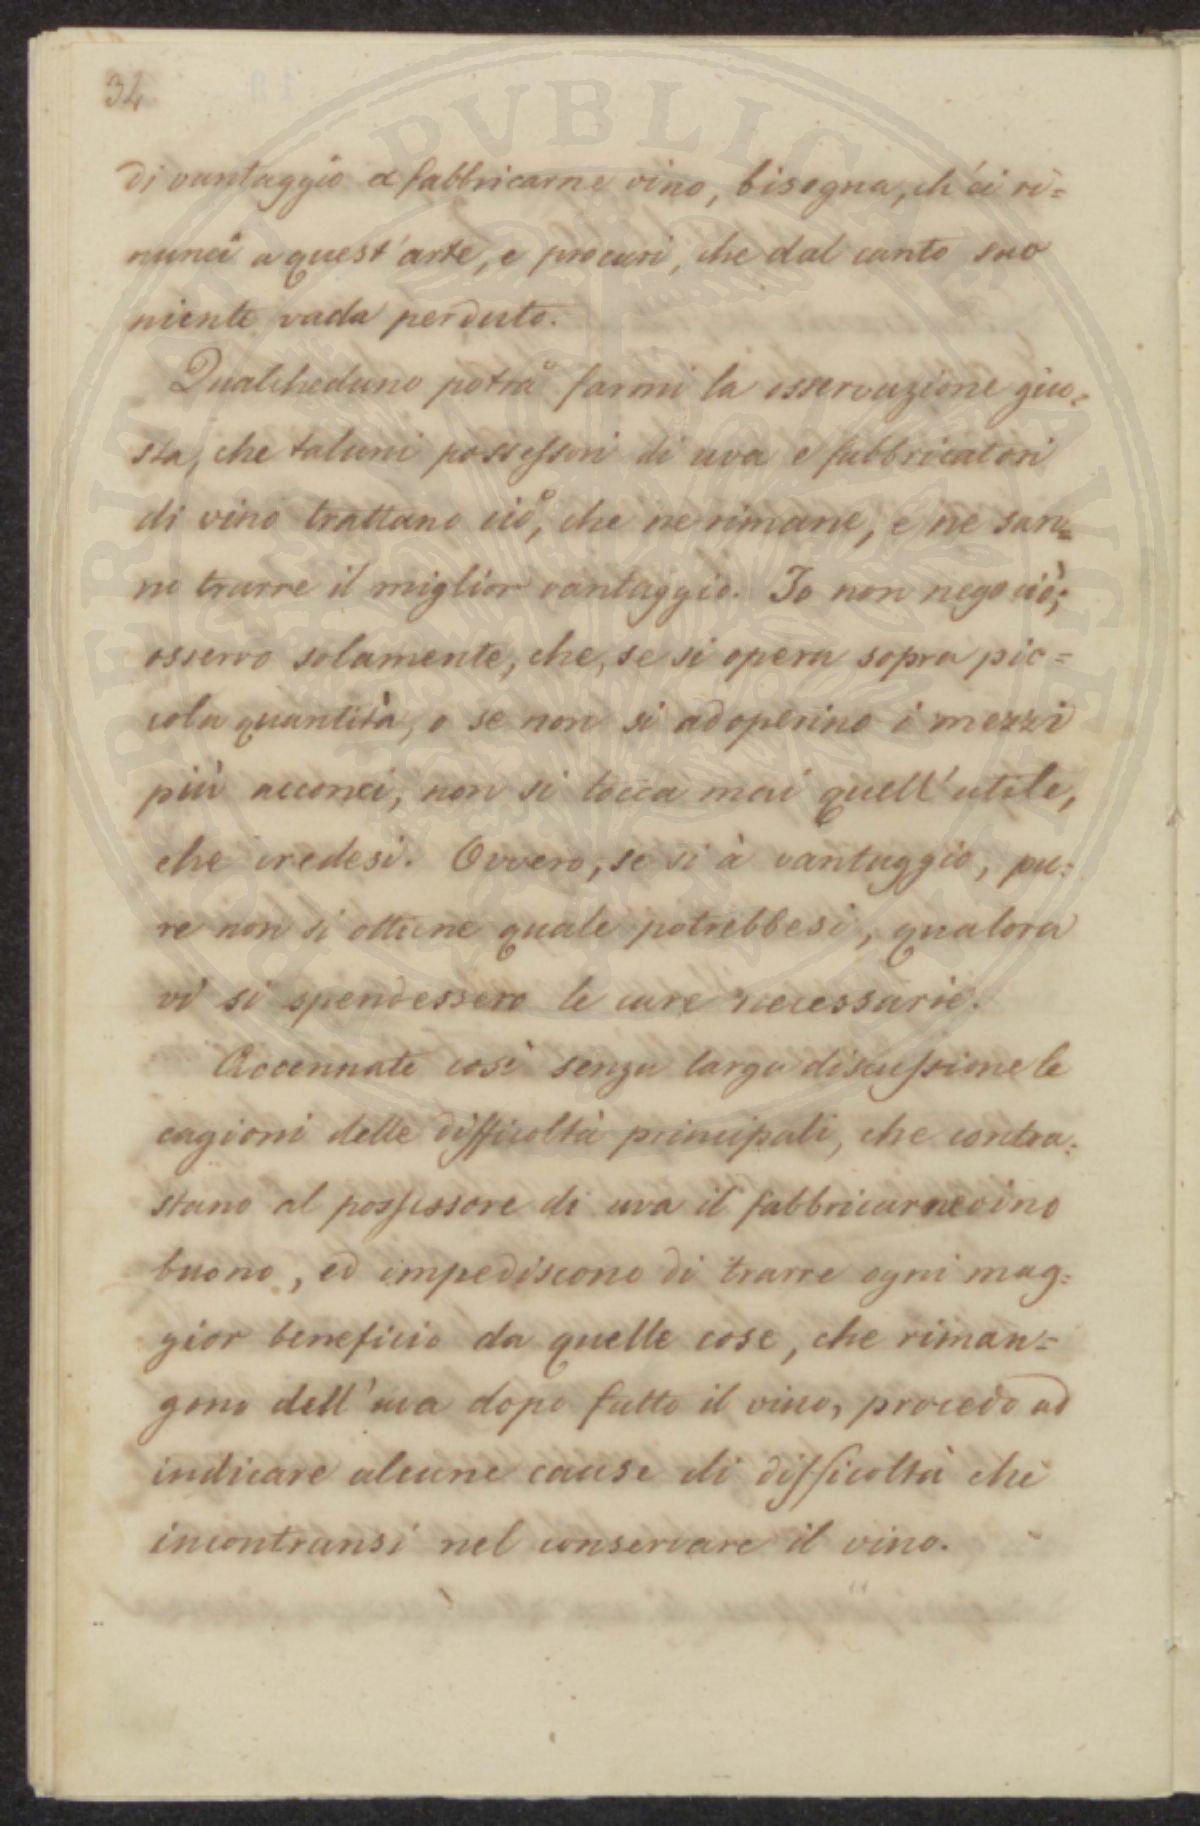 34
di vantaggio a fabbricarne vino, bisogna, ch'ei ri=
nunci a quest'arte, e procuri, che dal canto suo
niente vada perduto.
Qualcheduno potrà farmi la osservazione giu=
sta, che taluni possessori di uva e fabbricatori
di vino trattano ciò, che ne rimane, e ne san=
no trarre il miglior vantaggio. Io non nego ciò;
osservo solamente, che, se si opera sopra pic=
cola quantità, o se non si adoperino i mezzi
più acconci, non si tocca mai quell'utile,
che credesi. Ovvero, se si à vantaggio, pu=
re non si ottiene quale potrebbesi, qualora
vi si spendessero le cure necessarie.
Accennate così senza larga discussione le
cagioni delle difficoltà principali, che contra=
stano al possessore di uva il fabbricarne vino
buono, ed impediscono di trarre ogni mag=
gior beneficio da quelle cose, che riman=
gono dell'uva dopo fatto il vino, procedo ad
indicare alcune cause di difficoltà che
incontransi nel conservare il vino.